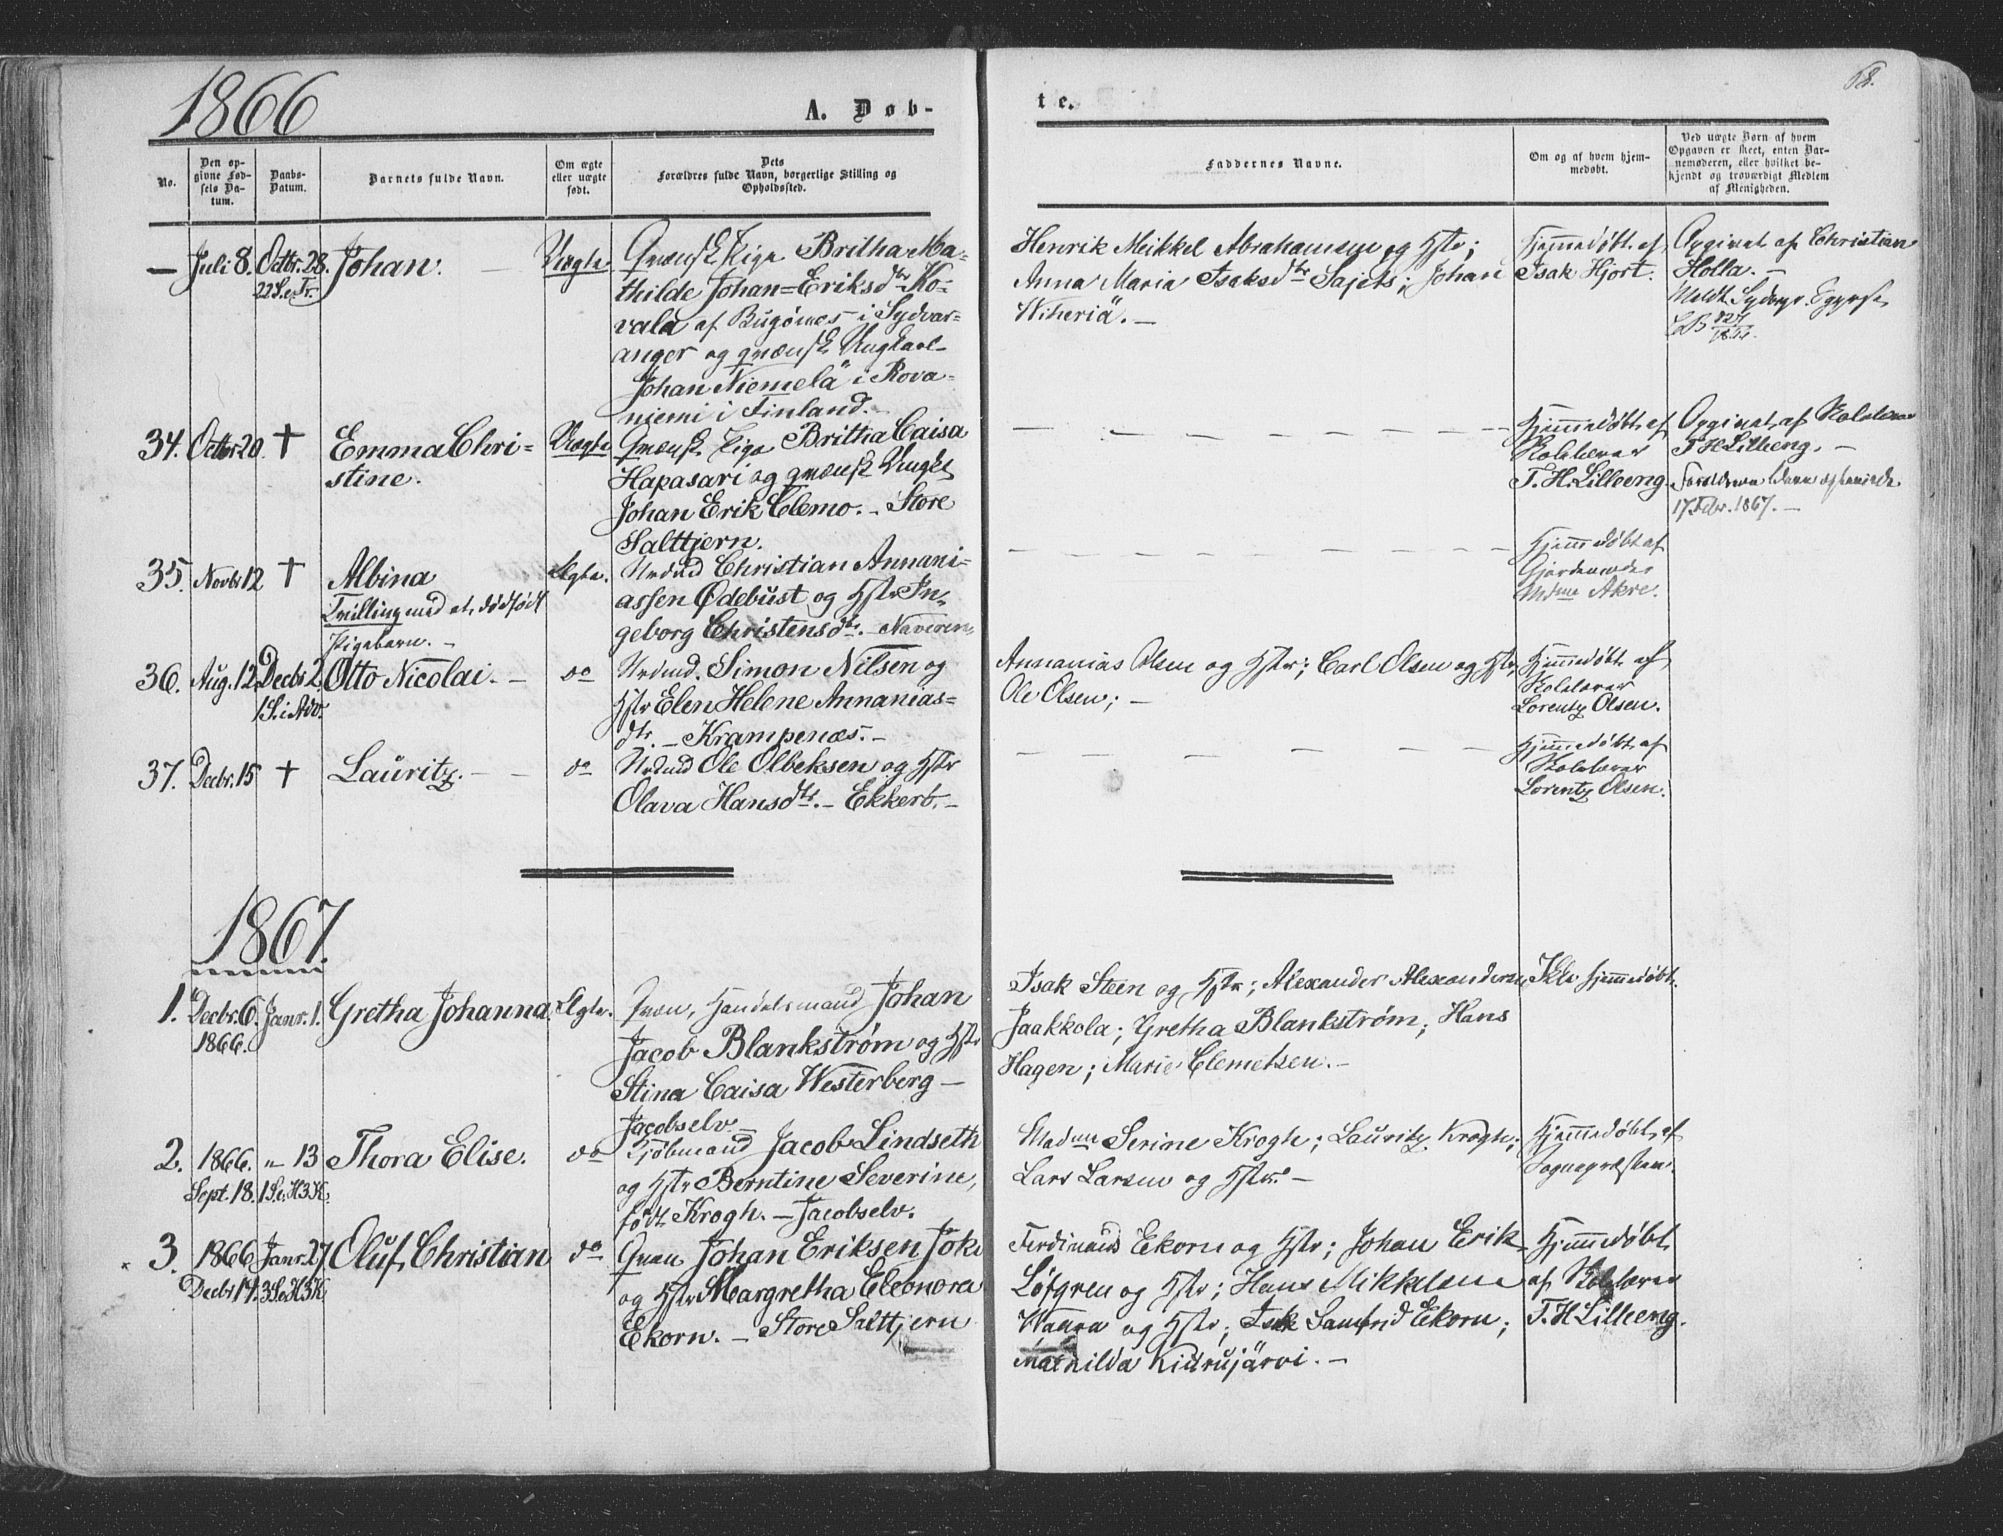 1866
A. Døb-
te.
58.
No.
Den op-
givne Fød-
sels Da-
tum.
Daabs-
Datum.
Barnets fulde Navn.
Om ægte
eller uægte
født.
Dets
Forældres fulde Navn, borgerlige Stilling og
Opholdssted.
Faddernes Navne.
Om og af hvem hjem-
medøbt.
Ved uægte Børn af hvem
Opgaven er skeet, enten Bar-
nemoderen, eller hvilket be-
kjendt og troværdigt Medlem
af Menigheden.
— Juli 8. Octbr. 28. Johan. — Uægte
22 S. e. Tr.
Qvænsk Pige Britha Ma-
thilde Johan=Eriksdtr Ko-
vala af Bugönæs i Sydvar-
anger og qvænsk Ungkarl
Johan Niemelä i Rova-
niemi i Finland.
Henrik Meikkel Abrahamsen og Hstr;
Anna Maria Isaksdtr Sajets; Johan
Witheriä. —
Hjemmedøbt af
Isak Hjort.
Opgivet af Christian
Holla. —
Meldt Sydvgr.
34. Octbr 20. † Emma Chri-
stine.
Uægte
Qvænsk Pige Britha Caisa
Hapasari og qvænsk Ungk.
Johan Erik Clemo. — Store
Salttjern.
— — — — — — — —
Hjemmedøbt af
Skolelærer
T. H. Lilleeng.
Opgivet af Skolelærer
T. H. Lilleeng. —
Forældrene
17 Febr. 1867. —
35. Novbr 12 † Albina
Tvilling med et dødfødt
Pigebarn. —
Ægte.
Nrdmd Christian Annani-
assen Ødebust og Hstr In-
geborg Christensdtr. — Naveren
— — — — — — — —
Hjemmedøbt af
Gjordemoder
Mdme Akre.
36. Aug. 12. Decbr 2. Otto Nicolai. — do
1 S. i Adv.
Nrdmd. Simon Nilsen og
Hstr Elen Helene Annanias-
dtr. — Krampenæs. —
Annanias Olsen og Hstr; Carl Olsen og Hstr;
Ole Olsen; —
Hjemmedøbt af
Skolelærer
Lorentz Olsen.
37. Decbr. 15 † Lauritz. — — do
Nrdmd Ole Olbeksen og Hstr
Olava Hansdtr. — Ekkerö. —
— — — — — — —
Hjemmedøbt af
Skolelærer
Lorentz Olsen.
1867.
1. Decbr. 6. Janr. 1. Gretha Johanna. Ægte.
1866.
Qvæn, Handelsmand Johan
Jacob Blankstrøm og Hstr
Stina Caisa Westerberg —
Jacobselv.
Isak Steen og Hstr; Alexander Alexandersen
Jaakkola; Gretha Blankstrøm; Hans
Hagen; Marie Clemetsen. —
Ikke hjemmedøbt.
2. 1866. „ 13 Thora Elise. do
Sept. 18. 1 S. e. H3K.
Kjøbmand Jacob Lindseth
og Hstr Berntine Severine,
født Krogh. — Jacobselv.
Madme Serine Krogh; Lauritz Krogh;
Lars Larsen og Hstr. —
Hjemmedøbt af
Sognepræsten.
3. 1866 Janr. 27. Oluf Christian do
Decbr 14. 3 S. e. H3K
Qvæn Johan Eriksen Joki
og Hstr Margretha Eleonora
Ekorn. — Store Salttjern
Ferdinand Ekorn og Hstr; Johan Erik
Løfgren og Hstr; Hans Mikkelsen
Wanra og Hstr; Isak Samfrid Ekorn;
Mathilda Kiurujärvi. —
Hjemmedøbt
af Skolelærer
T. H. Lilleeng.